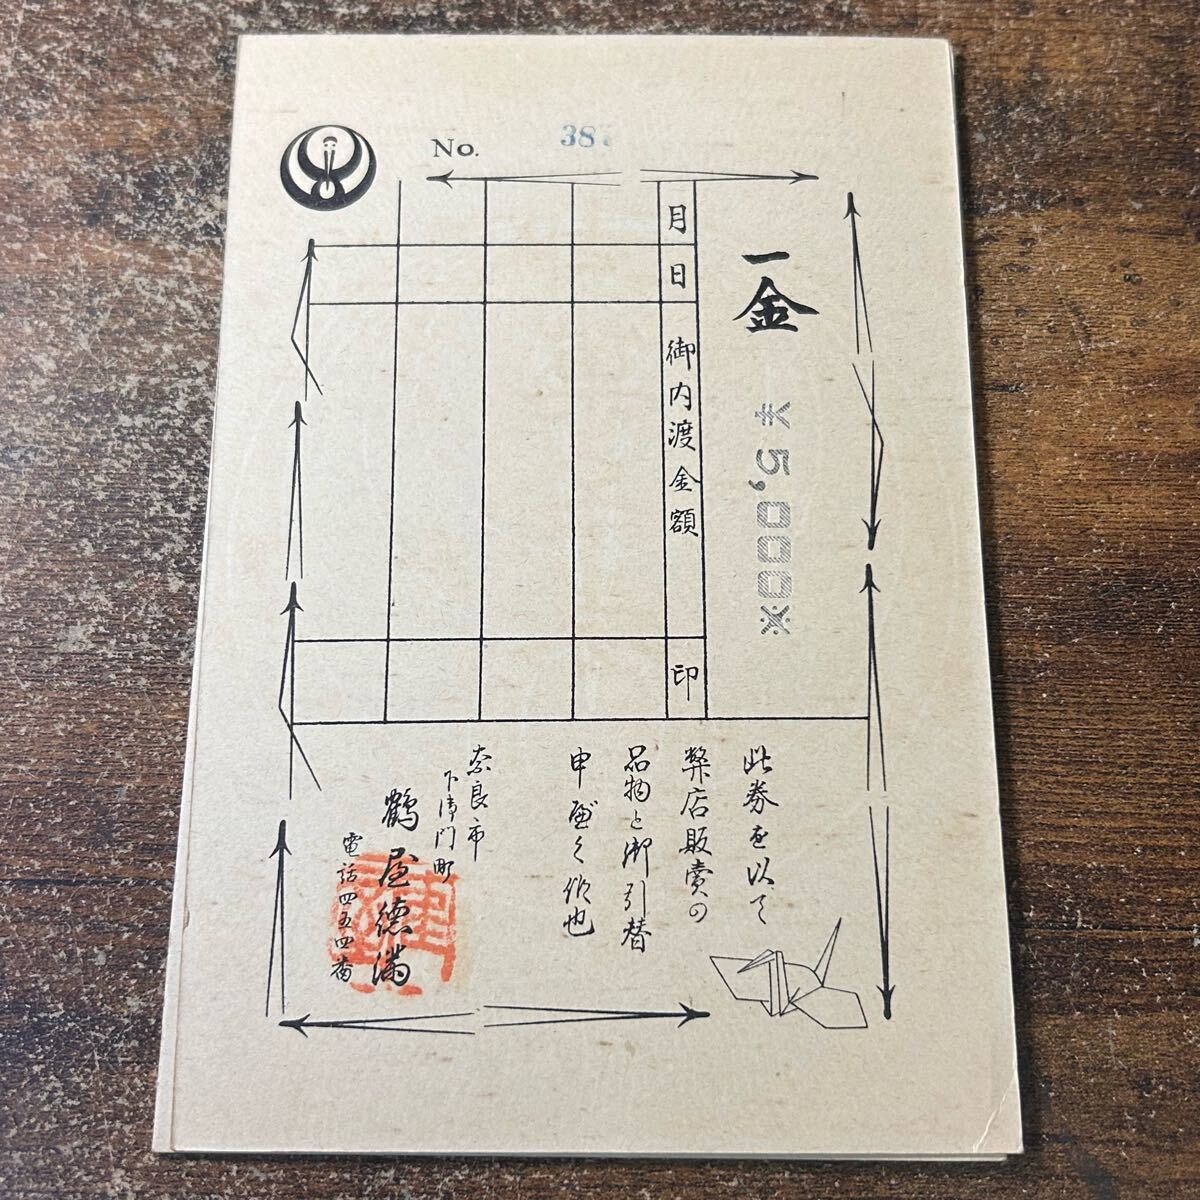 No. 387
一金 ¥5,000※
月 日 御内渡金額 印
此券を以て
弊店販賣の
品物と御引替
申候也
奈良市
下清門町
鶴屋徳満
電話四五四番